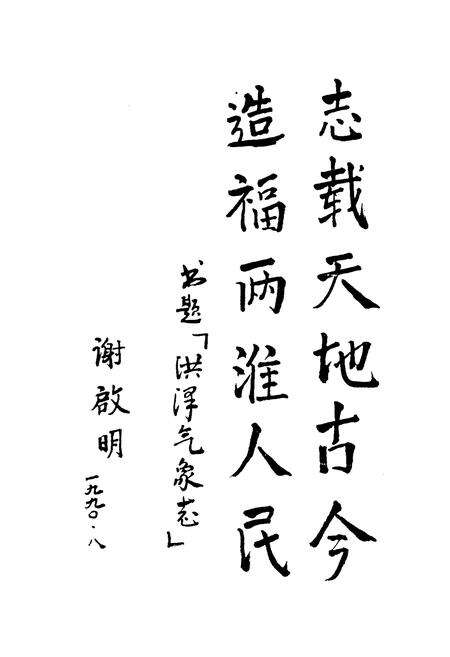 志载天地古今
造福两淮人民
书题「洪泽气象志」
谢啟明
一九九〇·八